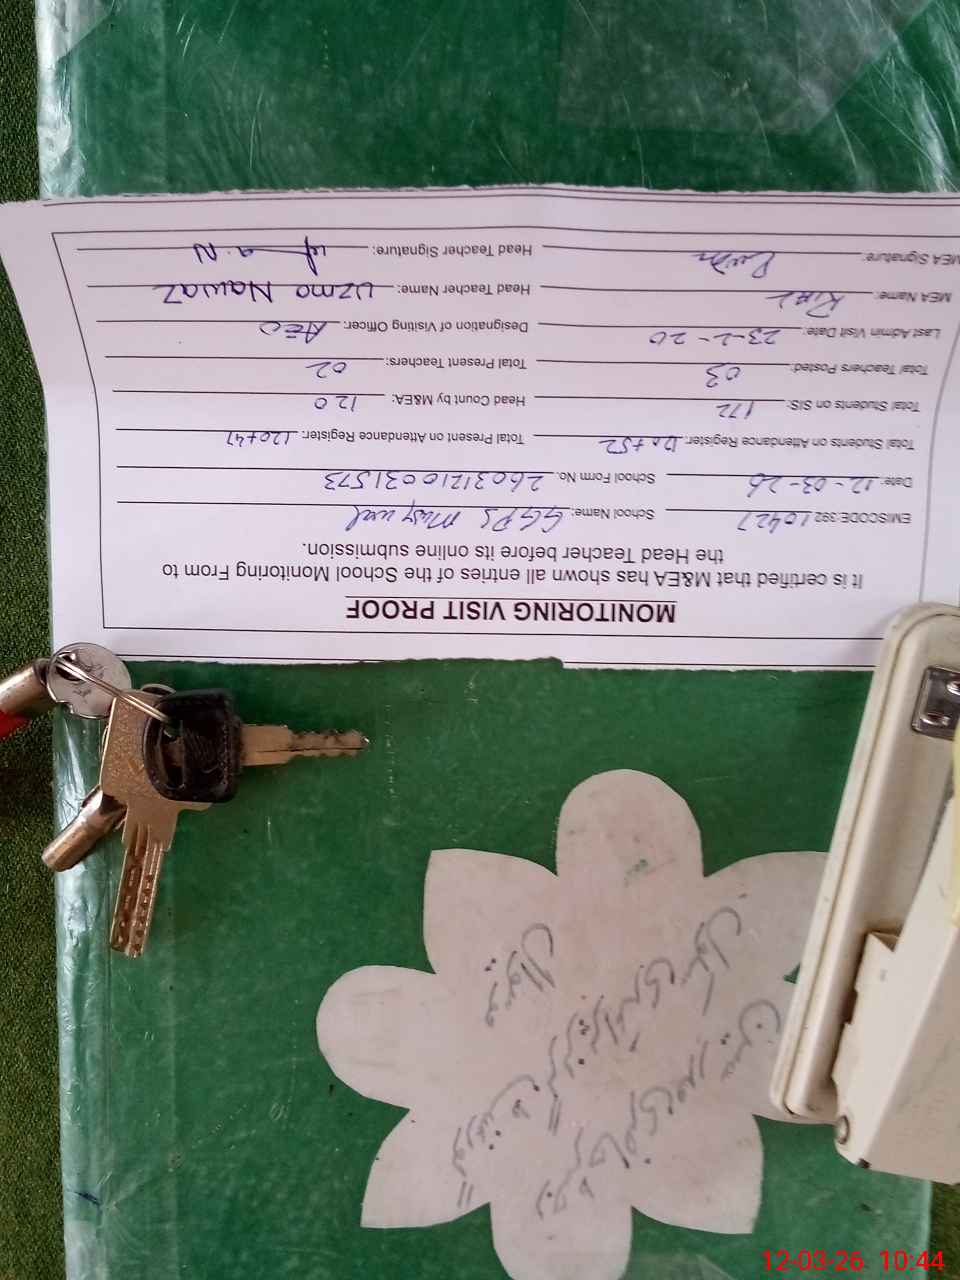 MONITORING VISIT PROOF
It is certified that M&EA has shown all entries of the School Monitoring From to
the Head Teacher before its online submission.
EMISCODE:392 10427 School Name: GGPS
Date: 12-03-26 School Form No. 26031210031573
Total Students on Attendance Register: 120+52 Total Present on Attendance Register: 120+47
Total Students on SIS: 172 Head Count by M&EA: 120
Total Teachers Posted: 03 Total Present Teachers: 02
Last Admin Visit Date: 23-2-20 Designation of Visiting Officer: AEO
MEA Name: Head Teacher Name: Uzma Nawaz
MEA Signature: Head Teacher Signature:
رجسٹر حاضری مدرسین
گورنمنٹ گرلز پرائمری سکول
12-03-26 10:44